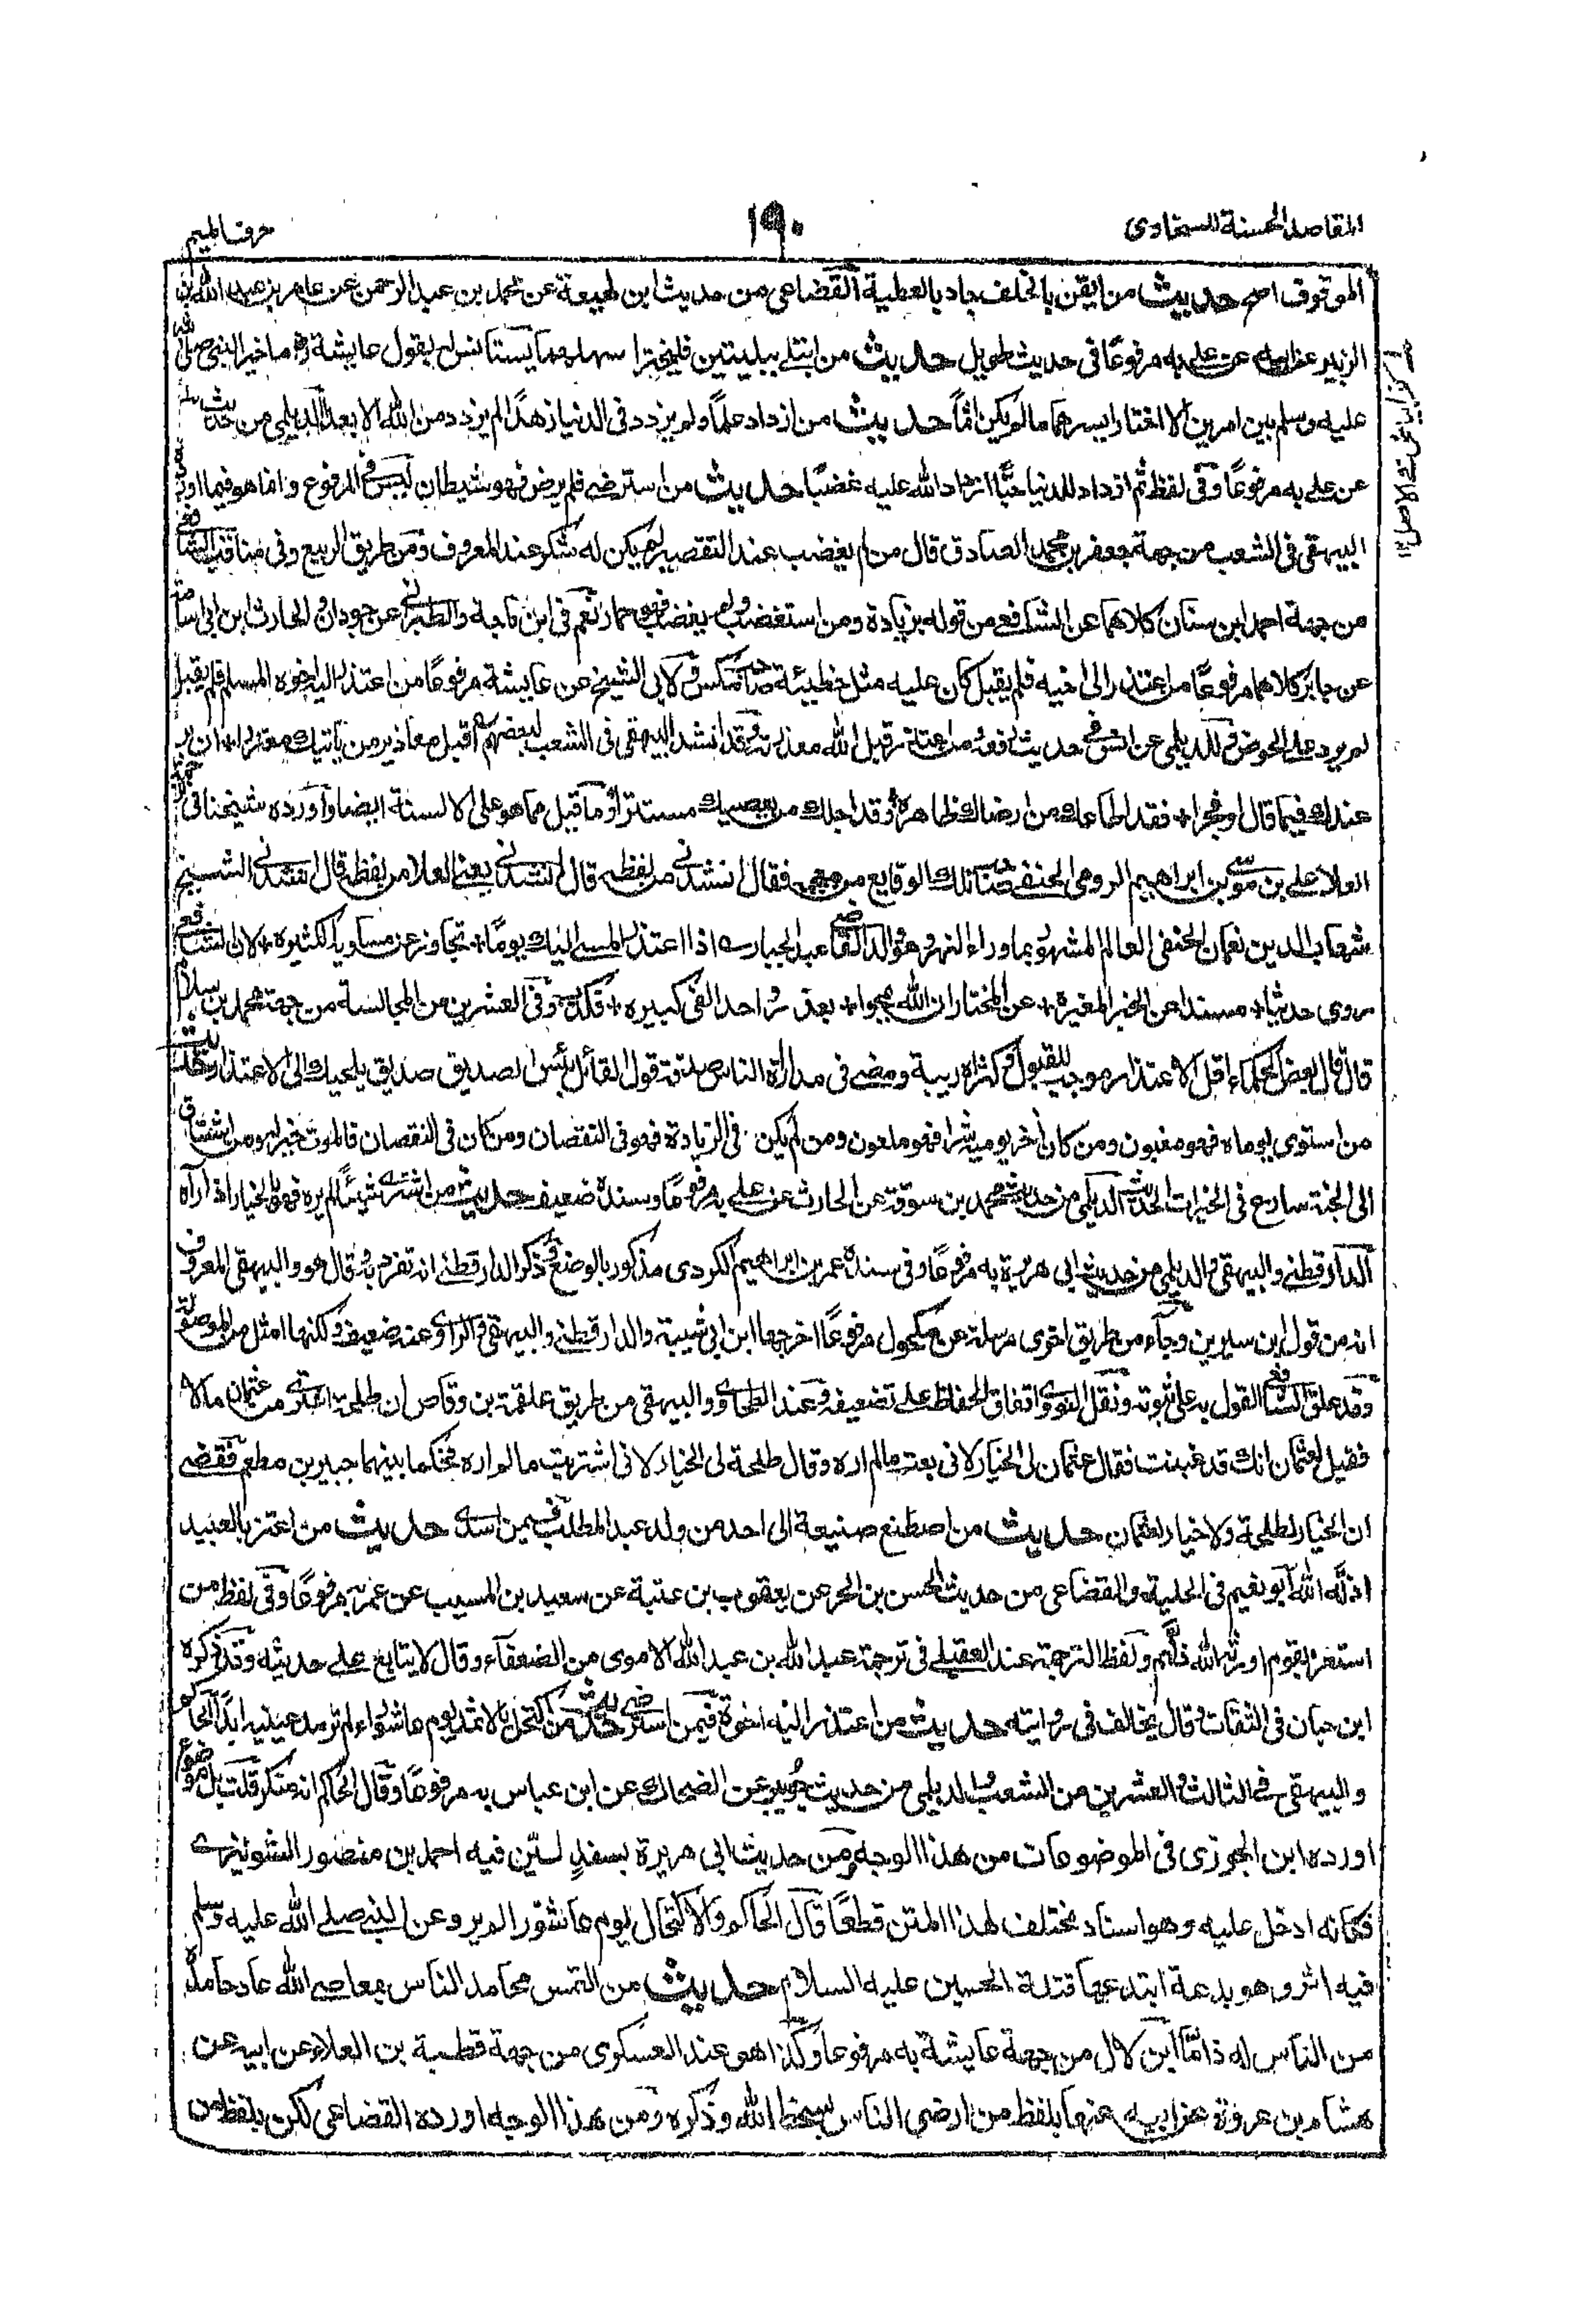 المقاصد الحسنة للسخاوى
١٩٠
حرف الميم
الموقوف اصح حديث من ايقن بالخلف جاد بالعطية القضاعى من حديث ابن لهيعة عن محمد بن عبد الرحمن عن عامر بن عبد الله بن
الزبير عن ابيه عن على به مرفوعا فى حديث طويل حديث من ابتلى ببليتين فليختر اسهلهما يستانس له بقول عايشة رض ما خير النبى صلى الله
عليه وسلم بين امرين الا اختار ايسرهما ما لم يكن اثماً حديث من ازداد علماً ولم يزدد فى الدنيا زهداً لم يزدد من الله الا بعداً الديلمى من حديث
عن على به مرفوعاً وفى لفظ ثم ازداد للدنيا حبًّا ازداد الله عليه غضبًا حديث من استرضى فلم يرض فهو شيطان ليس فى المرفوع وانما هو فيما اورده
البيهقى فى الشعب من جهة جعفر بن محمد الصادق قال من لم يغضب عند التقصير لم يكن له شكر عند المعروف ومن طريق الربيع وفى مناقب الشافعى
من جهة احمد ابن سنان كلاهما عن الشافعى من قوله بزيادة ومن استغضب ولم يغضب فهو حمار نعم فى ابن ماجة والطبرانى عن جودان والحارث ابن ابى اسامة
عن جابر كلاهما مرفوعًا من اعتذر الى اخيه فلم يقبل كان عليه مثل خطيئة صاحب مكس ولابى الشيخ عن عايشة مرفوعًا من اعتذر اليه اخوه المسلم فلم يقبل
لم يرد على الحوض وللديلمى عن انس فى حديث رفعه من اعتذر قبل الله معذرته وقد انشد البيهقى فى الشعب لبعضهم اقبل معاذير من ياتيك معتذرا+ ان بر
عندك فيما قال او فجرا+ فقد اطاعك من ارضاك ظاهره+ وقد اجلك من يعصيك مستترا وما قيل مما هو على الالسنة ايضا واورده شيخنا فى
العلاء على بن موسى بن ابراهيم الرومى الحنفى صاحب تلك الوقايع من معجمه فقال انشدنى من لفظه قال انشدنى يعنى العلا من لفظه قال انشدنى الشيخ
شهاب الدين نعمان الحنفى العالم المشهور بما وراء النهر وهو والد القاضى عبد الجبار اذا اعتذر المسئ اليك يومًا+ تجاوز عن مساويه الكثيره+ لان الشافعى
روى حديثا+ مسندا عن الخبر المغيرة+ عن المختار ان الله يمحوا+ بعذر واحد الفى كبيره+ وفى العشرين من المجالسة من جهة محمد بن سلام
قال قال بعض الحكماء اقل الاعتذار موجب للقبول وكثرته ريبة ومضى فى مداراة الناس صدقة قول القائل بئس الصديق صديق يلجيك الى الاعتذار حديث
من استوى يوماه فهو مغبون ومن كان اخر يوميه شرا فهو ملعون ومن لم يكن فى الزيادة فهو فى النقصان ومن كان فى النقصان فالموت خير له ومن اشتاق
الى الجنة سارع فى الخيرات الحديث الديلمى من حديث محمد بن سوقة عن الحارث عن على به مرفوعًا وسنده ضعيف حديث من اشترى شيئًا لم يره فهو بالخيار اذا رآه
الدارقطنى والبيهقى والديلمى من حديث ابى هريرة به مرفوعًا وفى سنده عمر بن ابراهيم الكردى مذكور بالوضع وذكر الدارقطنى انه تفرد به وقال هو والبيهقى المعروف
انه من قول ابن سيرين وجاء من طريق اخرى مرسلة عن مكحول مرفوعًا اخرجها ابن ابى شيبة والدارقطنى والبيهقى والراوى عنه ضعيف ولكنها امثل من الموصولة
وقد علق الشافعى القول به على ثبوته ونقل النووى اتفاق الحفاظ على تضعيفه وعند الطحاوى والبيهقى من طريق علقمة بن وقاص ان طلحة اشترى من عثمان مالا
فقيل لعثمان انك قد غبنت فقال عثمان لى الخيار لانى بعت ما لم اره وقال طلحة لى الخيار لانى اشتريت ما لم اره فحكما بينهما جبير بن مطعم فقضى
ان الخيار لطلحة ولا خيار لعثمان حديث من اصطنع صنيعة الى احد من ولد عبد المطلب فى من اسدى حديث من اعتز بالعبيد
اذله الله ابو نعيم فى الحلية والقضاعى من حديث الحسن بن الحر عن يعقوب بن عتبة عن سعيد بن المسيب عن عمر به مرفوعًا وفى لفظ من
استعز بقوم اورثه الله ذلهم ولفظ الترجمة عند العقيلى فى ترجمة عبد الله بن عبد الله الاموى من الضعفاء وقال لا يتابع على حديثه وقد ذكره
ابن حبان فى الثقات وقال يخالف فى روايته حديث من اعتذر اليه اخوة فيمن استرضى حديث من اكتحل بالاثمد يوم عاشوراء لم ترمد عينيه ابدًا الحاكم
والبيهقى فى الثالث والعشرين من الشعب والديلمى من حديث جويبر عن الضحاك عن ابن عباس به مرفوعًا وقال الحاكم انه منكر قلت بل موضوع
اورده ابن الجوزى فى الموضوعات من هذا الوجه ومن حديث ابى هريرة بسند ليّن فيه احمد بن منصور الشونيزى
فكانه ادخل عليه وهو اسناد مختلف لهذا المتن قطعًا قال الحاكم والاكتحال يوم عاشورا لم يرو عن النبى صلى الله عليه وسلم
فيه اثر وهو بدعة ابتدعها قتلة الحسين عليه السلام حديث من التمس محامد الناس بمعاصى الله عاد حامده
من الناس له ذامًّا ابن لال من جهة عايشة به مرفوعا وكذا هو عند العسكرى من جهة قطبة بن العلاء عن ابيه عن
هشام بن عروة عن ابيه عنها بلفظ من ارضى الناس بسخط الله وذكره ومن هذا الوجه اورده القضاعى لكن بلفظ من